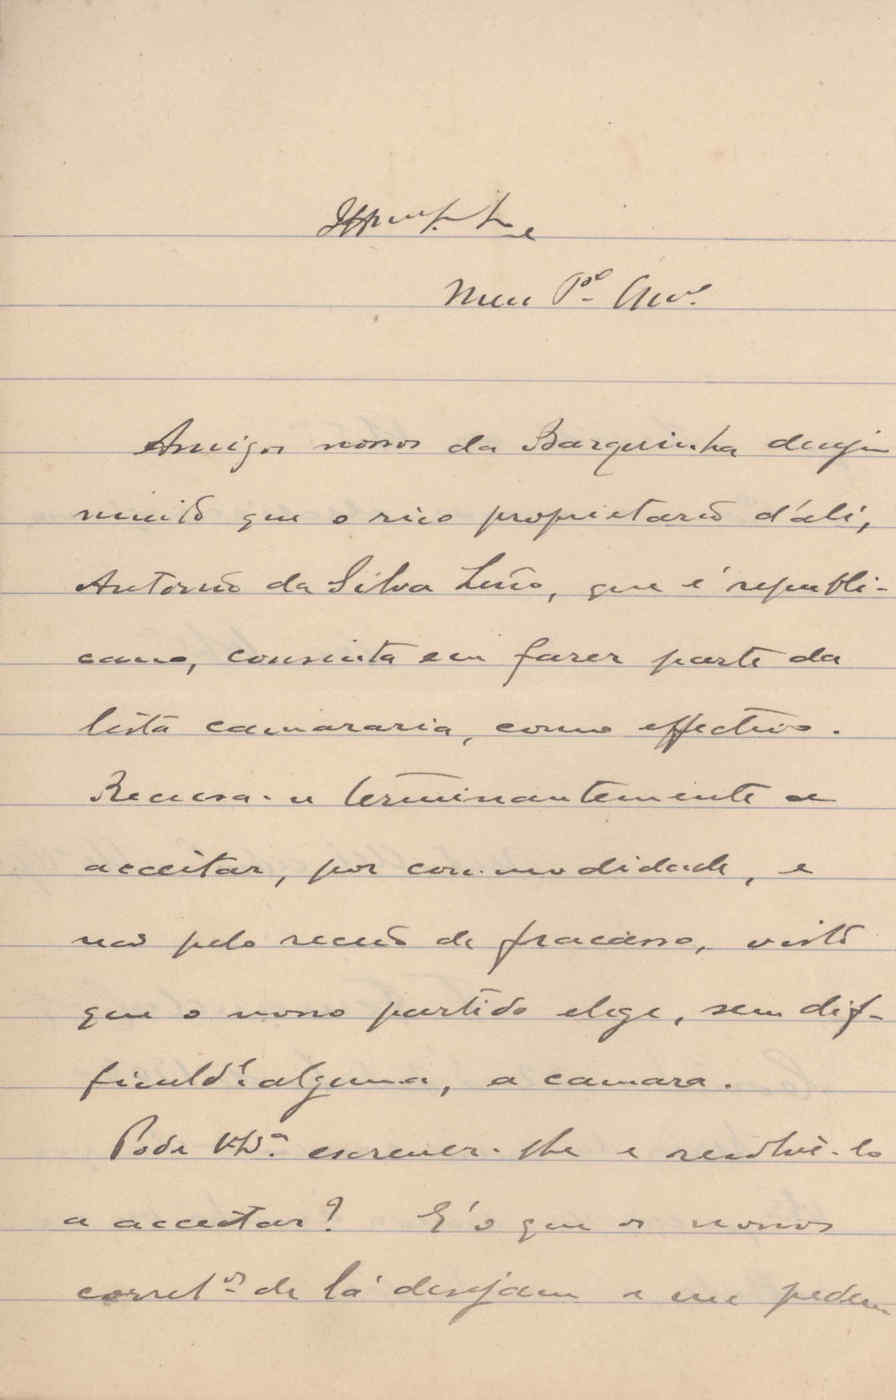 Meu P.e Am.o
Amigos nossos da Barquinha desejam
muito que o rico proprietario d'ali,
Antonio da Silva, que é republi-
cano, consinta em fazer parte da
lista camararia, como effectivo.
Recusa-se terminantemente a
acceitar, por commodidade, e
não pelo receio de fracasso, visto
que o nosso partido elege, sem dif-
ficuld.e alguma, a camara.
Pode escrever-lhe e resolvê-lo
a acceitar? E' o que os nossos
correl.os de lá desejam e me pedem